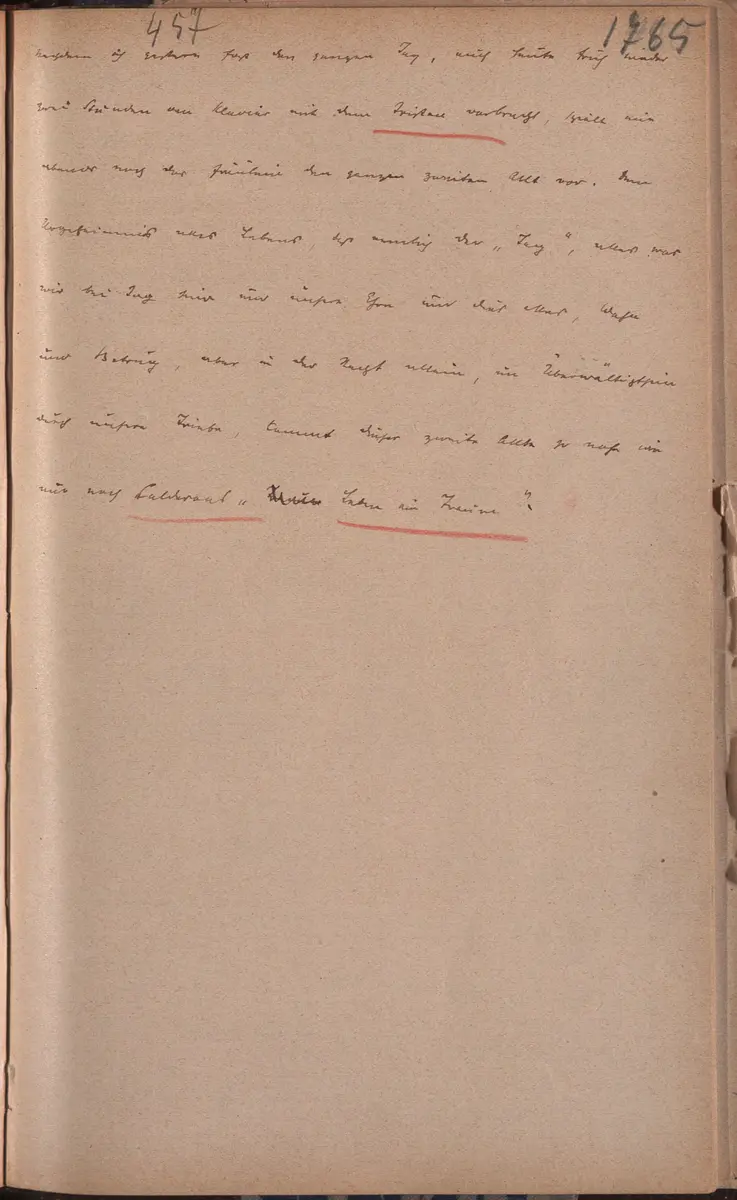 457
1765
nachdem ich gestern fast den ganzen Tag, auch heute früh wieder
zwei Stunden am Klavier mit dem Tristan verbracht, spielt mir
abends noch das Fräulein den ganzen zweiten Akt vor. Dem
Urgeheimnis alles Lebens, daß nemlich der „Tag“, alles was
wir bei Tag sind und unsre Ehre und dies alles, Wahn
und Betrug, aber in der Nacht allein, im Überwältigtsein
durch unsre Triebe, kommt dieser zweite Akt so nahe wie
nur noch Calderons „ Leben ein Traum“